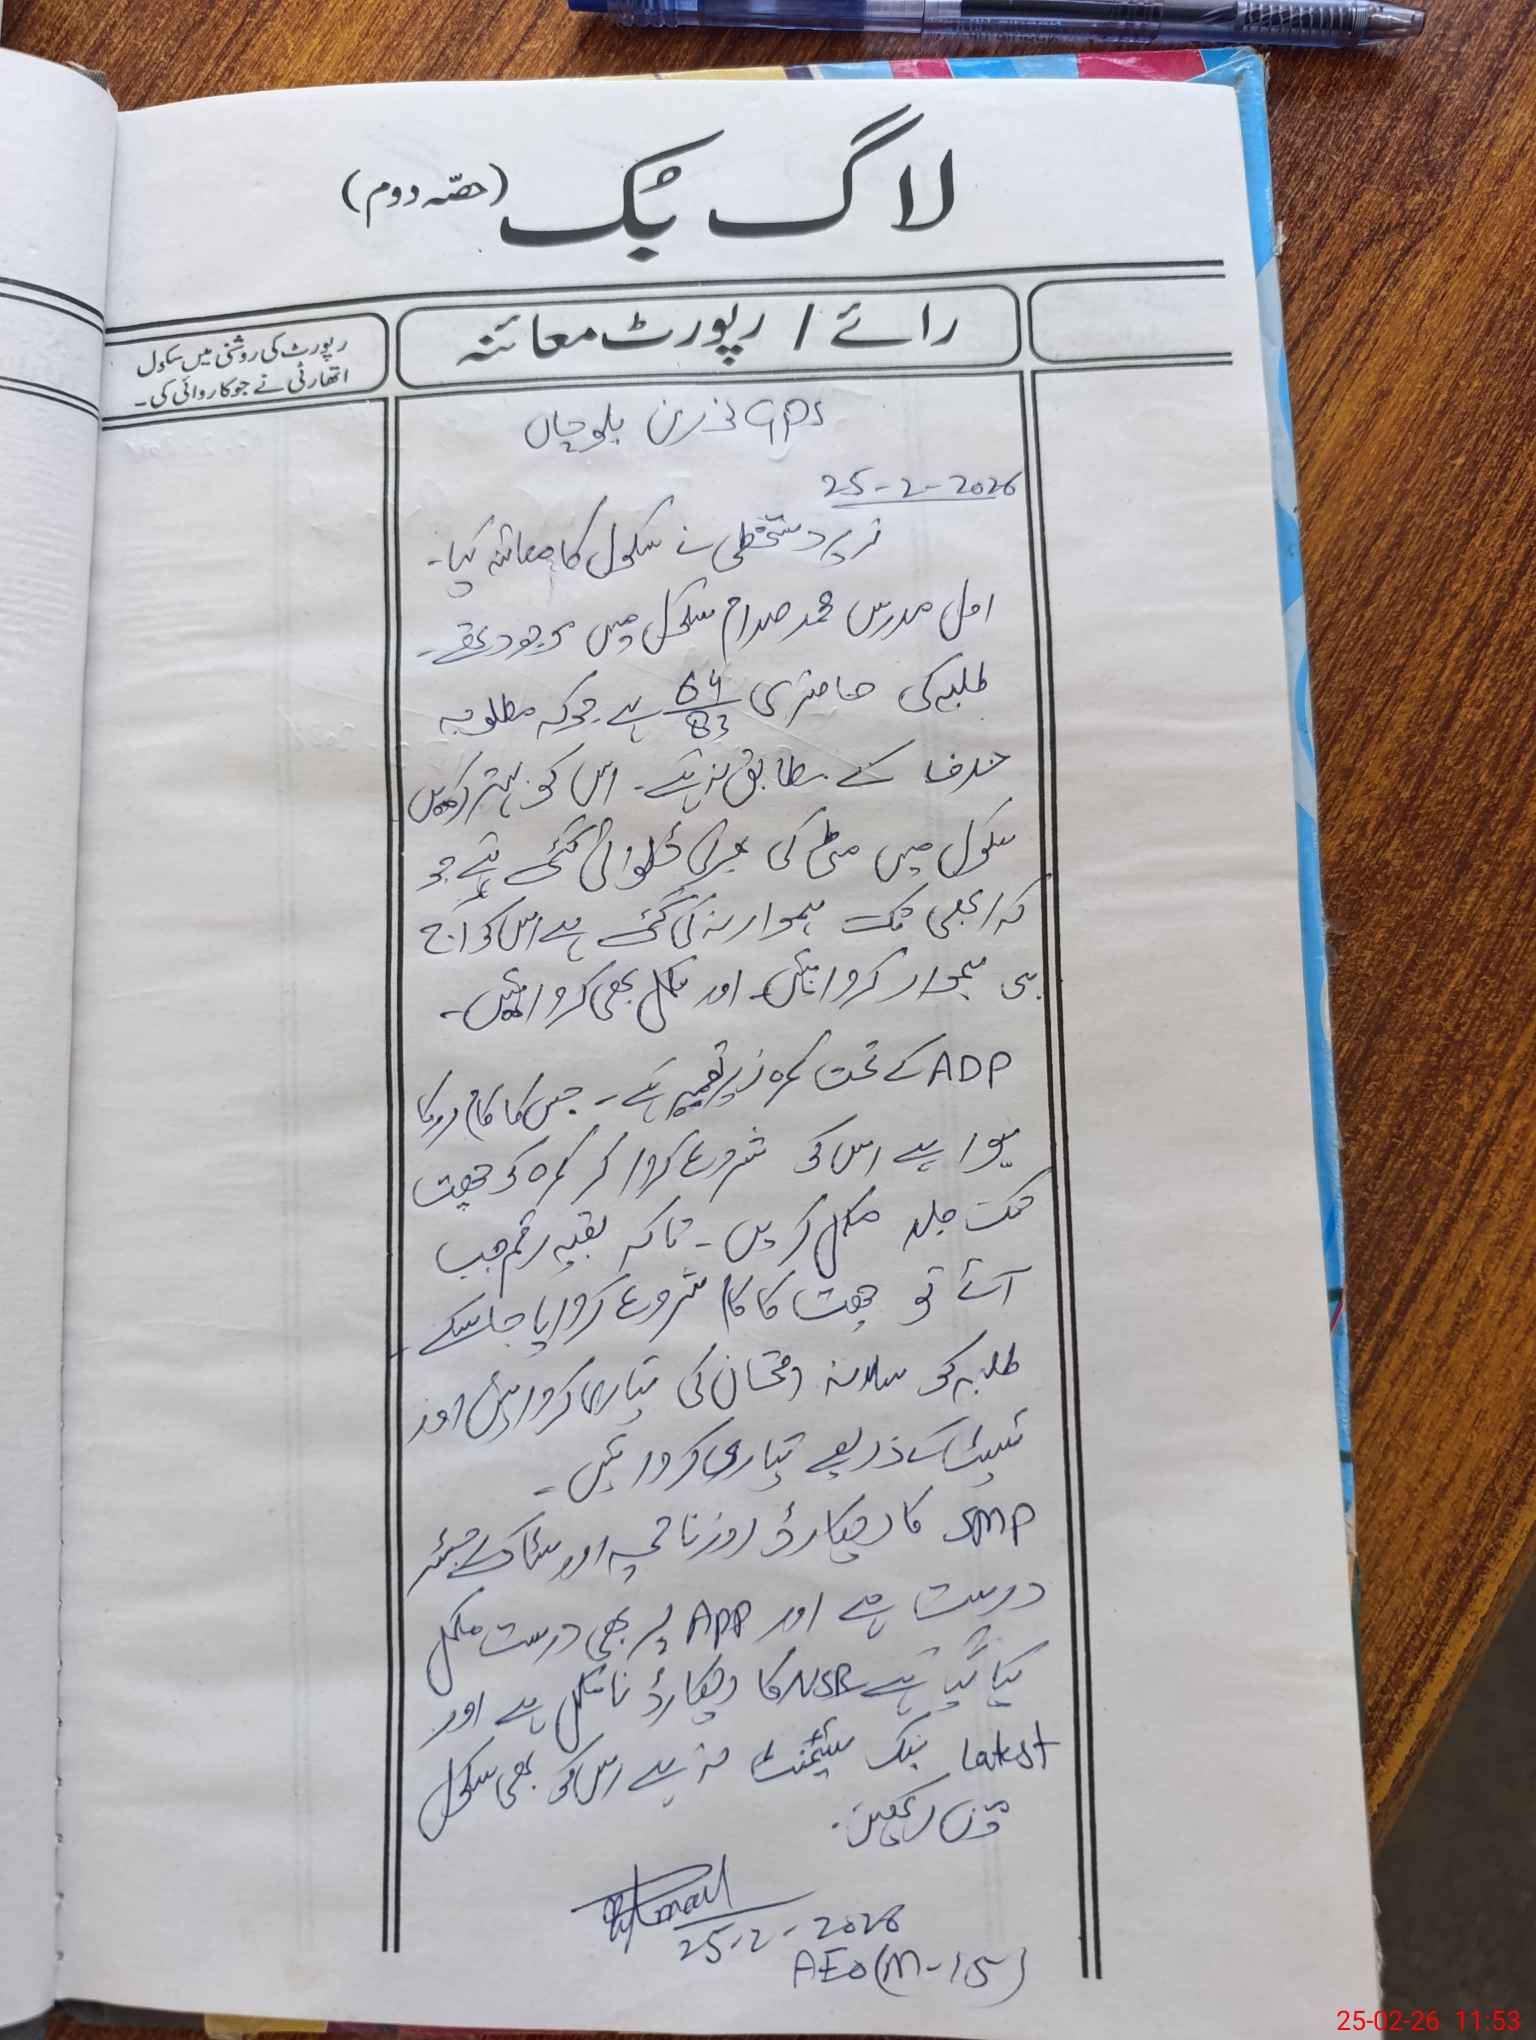 لاگ بک (حصّہ دوم)
رائے / رپورٹ معائنہ
رپورٹ کی روشنی میں سکول
اتھارٹی نے جو کاروائی کی۔
GPS بلوچاں
25-2-2026
زیر دستخطی نے سکول کا معائنہ کیا۔
اول مدرس محمد صدام سکول میں موجود تھے۔
طلبہ کی حاضری 64/83 ہے جو کہ مطلوبہ
کے مطابق نہ ہے۔ اس کو بہتر رکھیں
سکول میں مٹی کی ڈلوائی گئی ہے جو
کہ ابھی تک ہموار نہ کی گئی ہے اس کو آج
ہی ہموار کروائیں اور مکمل بھی کروائیں۔
ADP کے تحت کمرہ زیر تعمیر ہے۔ جس کا کام روکا
ہوا ہے اس کو شروع کروا کر کمرہ کو چھت
تک جلد مکمل کریں۔ تاکہ بقیہ رقم جب
آئے تو چھت کا کام شروع کروایا جا سکے۔
طلبہ کو سالانہ امتحان کی تیاری کروائیں اور
ٹیسٹ کے ذریعے تیاری کروائیں۔
SMP کا ریکارڈ روزنامچہ اور سٹاک رجسٹر
درست ہے اور APP پر بھی درست مکمل
کیا گیا ہے NSB کا ریکارڈ نامکمل ہے اور
Latest بنک سٹیٹمنٹ نہ ہے اس کو بھی سکول
میں رکھیں۔
25-2-2026
AEO (M-15)
25-02-26 11:53